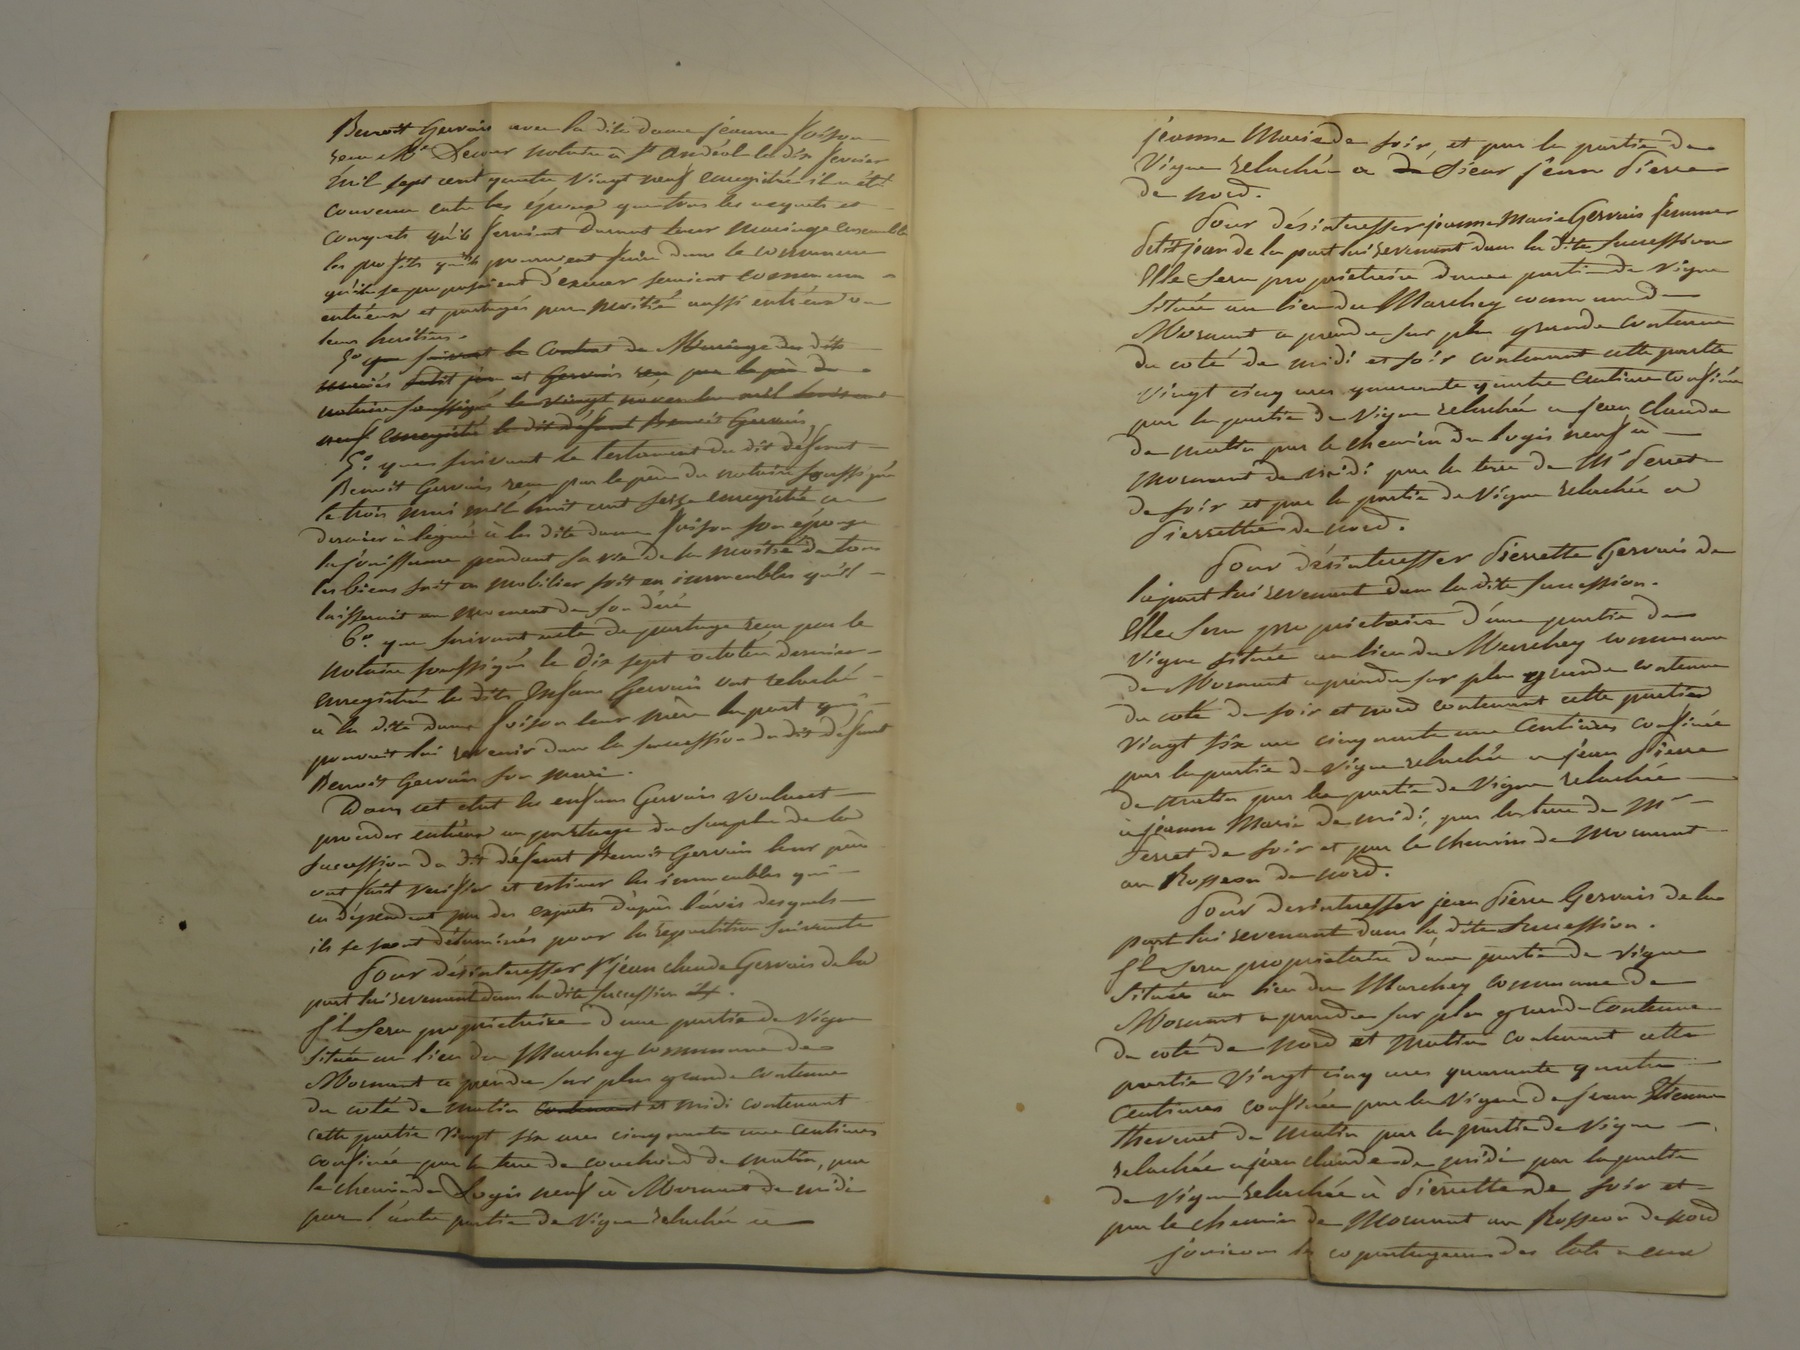 Benoit Gervais avec la dite dame jeanne Poison
recu Me notaire à St Andéol le dix fevrier
mil sept cent quatre Vingt neuf enregistré il a été
convenu entre les époux que tous les acquets et
conquets qu'ils feroient durant leur mariage ensemble
les profits qu'ils pourroient faire dans le commerce
qu'ils se proposoient d'exercer seroient communs
entr'eux et partagés par moitié aussi entr'eux ou
leurs heritiers.
5o que suivant le Contrat de Mariage des dits
mariés Petit jean et Gervais recu par le père du
notaire soussigné le vingt novembre mil huit cent
neuf enregistré le dit défunt Benoit Gervais
5o que suivant le testament du dit défunt
Benoit Gervais recu par le père du notaire soussigné
le trois mai mil huit cent seize enregistré ce
dernier a légué à la dite dame Poison son épouse
la jouissance pendant sa vie de la moitié de tous
les biens soit en mobilier soit en immeubles qu'il
laisseroit au moment de son décé
6o que suivant acte de partage recu par le
notaire soussigné le dix sept octobre dernier
enregistré les dits Enfans Gervais ont relaché
à la dite dame Poison leur mère la part qui
pouvoit lui revenir dans la succession du dit défunt
Benoit Gervais son mari.
Dans cet etat les enfans Gervais voulant
proceder entr'eux au partage du surplus de la
succession du dit défunt Benoit Gervais leur père
ont fait verifier et estimer les immeubles qui
en dépendent par des experts d'après l'avis desquels
ils se sont déterminés pour la repartition suivante
Pour désinteresser Sr jean claude Gervais de la
part lui revenant dans la dite succession il.
Il sera propriétaire d'une partie de Vigne
située au lieu du Marchey commune de
Mornant a prendre sur plus grande contenue
du coté de matin contenant et midi contenant
cette partie Vingt six ares cinquante une centiares
confinée par la terre de couchoud de matin, par
le chemin de Logis neuf à Mornant de midi
par l'autre partie de Vigne relachée a
jeanne Marie de soir, et par la partie de
Vigne relachée a de Sieur jean Pierre
de nord.
Pour désinteresser jeanne Marie Gervais femme
Petit jean de la part lui revenant dans la dite succession
Elle sera propriétaire d'une partie de Vigne
située au lieu du Marchey commune de
Mornant a prendre sur plus grande contenue
du coté de midi et soir contenant cette partie
vingt cinq ares quarante quatre Centiares confinée
par la partie de Vigne relachée a jean Claude
de matin par le chemin de logis neuf à
Mornant de midi par la terre de Mr Perret
de soir et par la partie de Vigne relachée a
Pierrette de nord.
Pour désinteresser Pierrette Gervais de
la part lui revenant dans la dite succession.
Elle sera propriétaire d'une partie de
Vigne située au lieu du Marchey commune
de Mornant a prendre sur plus grande contenue
du coté de soir et nord contenant cette partie
Vingt six ares cinquante une Centiares confinée
par la partie de Vigne relachée a jean Pierre
de matin par la partie de Vigne relachée
à jeanne Marie de midi, par la terre de Mr
Perret de soir et par le chemin de Mornant
au Rosseon de nord.
Pour desinteresser jean Pierre Gervais de la
part lui revenant dans la dite succession.
Il sera propriétaire d'une partie de Vigne
située au lieu du Marchey commune de
Mornant a prendre sur plus grande Contenue
du coté de nord et matin contenant cette
partie Vingt cinq ares quarante quatre
Centiares confinée par la Vigne de jean Etienne
thevenet de matin par la partie de Vigne
relachée a jean claude de midi par la partie
de Vigne relachée à Pierrette de soir et
par le chemin de Mornant au Rosseon de nord
jouiront les copartageans des lots a eux